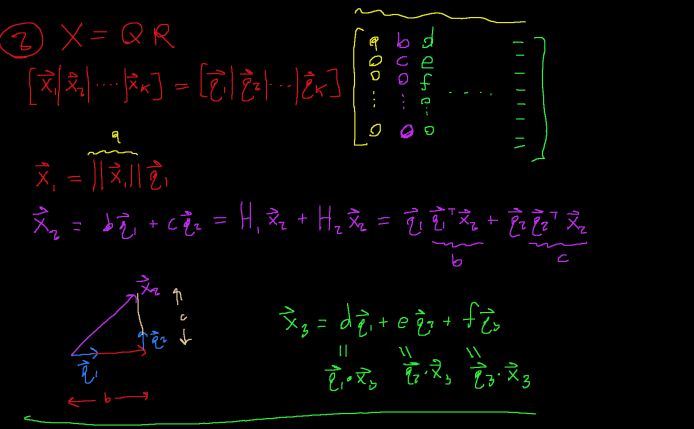 ③ X = QR
[x⃗₁|x⃗₂|⋯|x⃗ₖ] = [q⃗₁|q⃗₂|⋯|q⃗ₖ]
[a b d –
0 c e –
0 0 f –
⋮ ⋮ 0 ⋯ –
0 0 0 –]
a
x⃗₁ = ||x⃗₁|| q⃗₁
x⃗₂ = bq⃗₁ + cq⃗₂ = H₁x⃗₂ + H₂x⃗₂ = q⃗₁q⃗₁ᵀx⃗₂ + q⃗₂q⃗₂ᵀx⃗₂
b c
x⃗₂
c
q⃗₂
q⃗₁
b
x⃗₃ = dq⃗₁ + eq⃗₂ + fq⃗₃
|| || ||
q⃗₁·x⃗₃ q⃗₂·x⃗₃ q⃗₃·x⃗₃